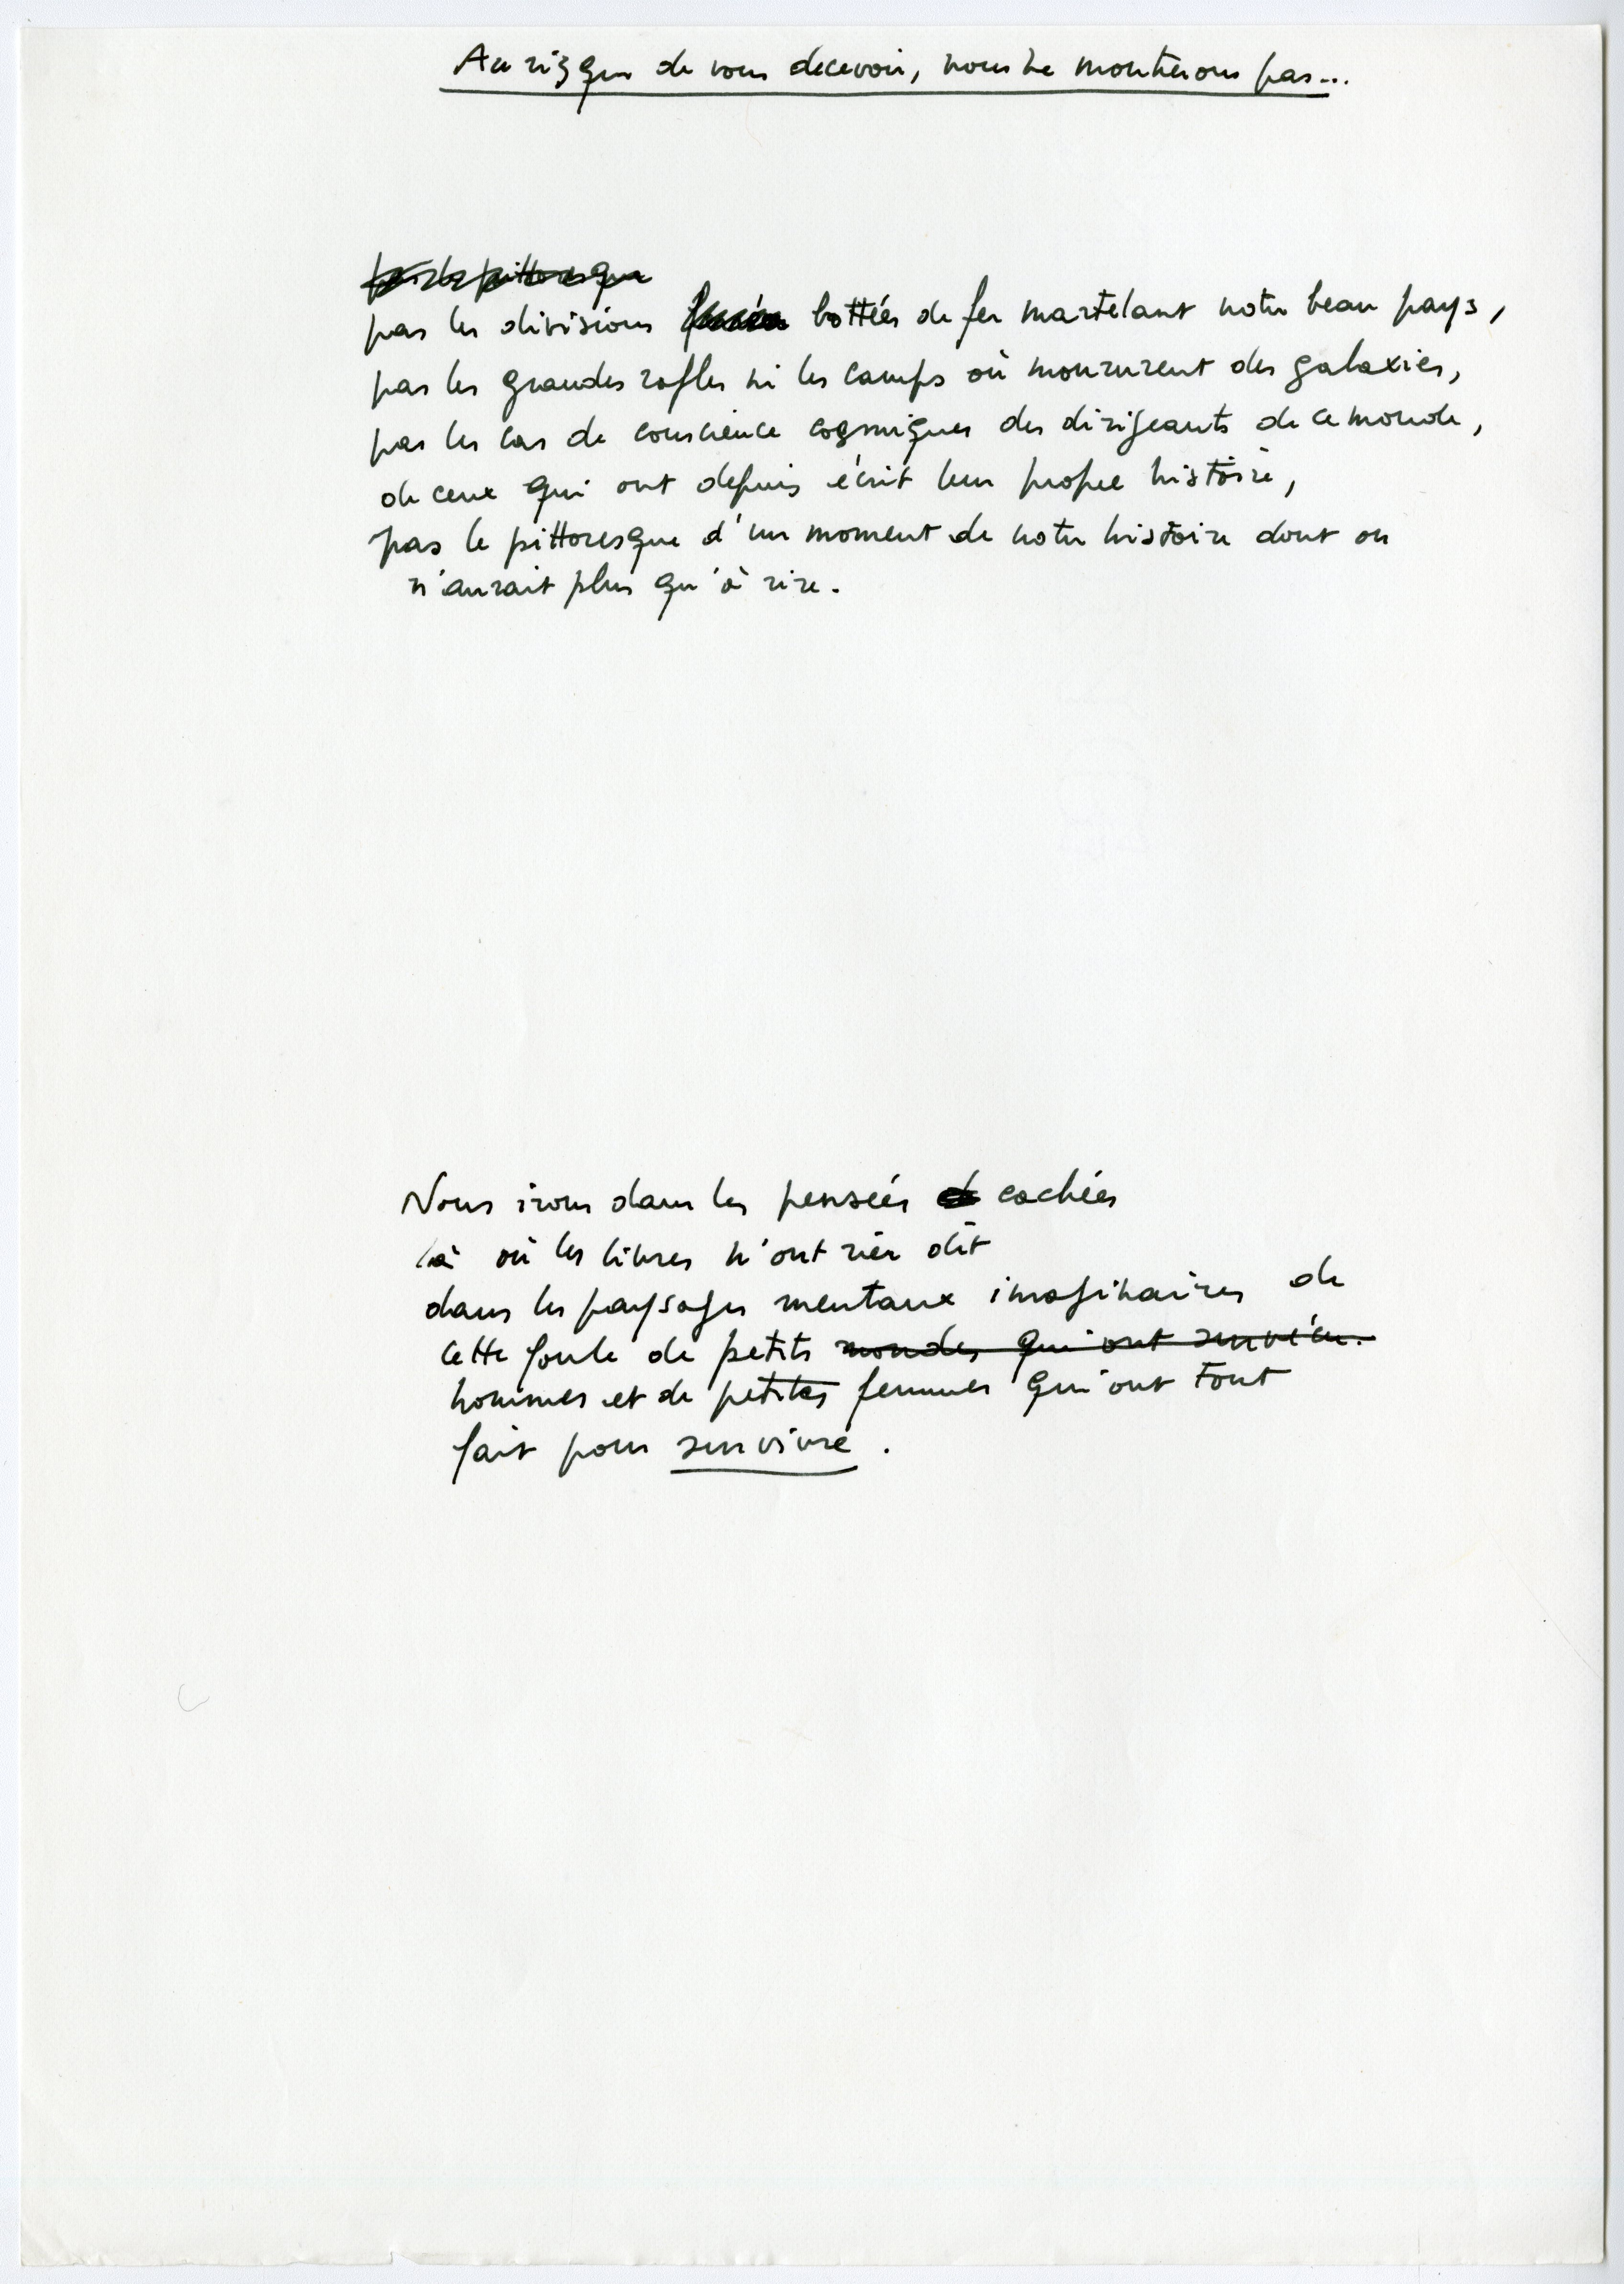 Au risque de vous decevoir, nous ne montrerons pas...
pas le pittoresque
pas les divisions bottées de fer martelant notre beau pays,
pas les grandes rafles ni les camps où moururent des galaxies,
pas les cas de conscience cosmiques des dirigeants de ce monde,
de ceux qui ont depuis écrit leur propre histoire,
pas le pittoresque d'un moment de notre histoire dont on
n'aurait plus qu'à rire.
Nous irons dans les pensées cachées
là où les livres n'ont rien dit
dans les paysages mentaux imaginaires de
cette foule de petits mondes qui ont survécu.
hommes et de petites femmes qui ont tout
fait pour survivre.